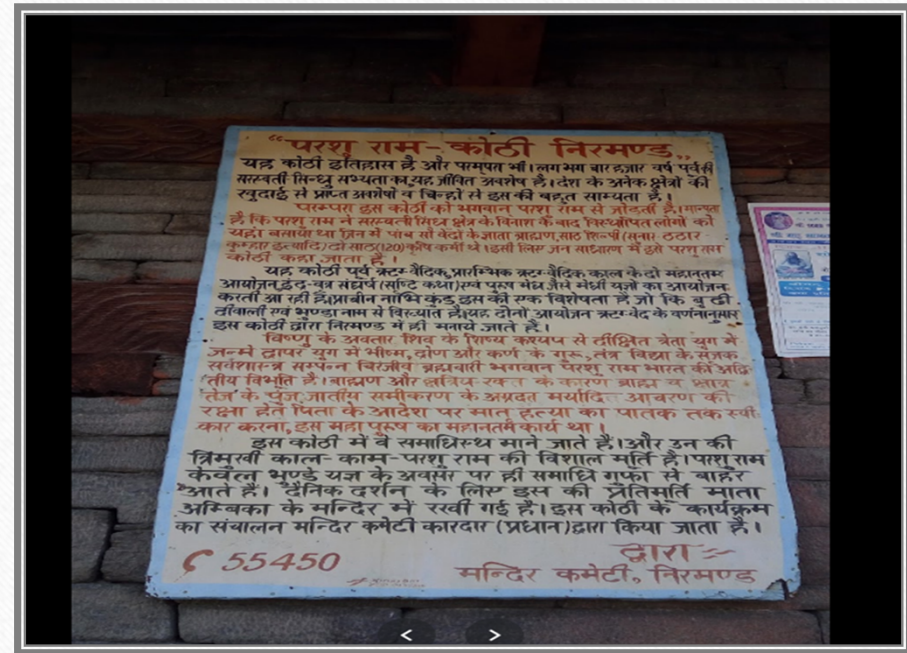 “परशु राम - कोठी निरमण्ड„
यह कोठी इतिहास है और परम्परा भी। लगभग चार हजार वर्ष पूर्व की
सरस्वती सिन्धु सभ्यता का यह जीवित अवशेष है। देश के अनेक क्षेत्रों की
खुदाई से प्राप्त अवशेषों व चिन्हों से इस की बहुत साम्यता है।
परम्परा इस कोठी को भगवान परशु राम से जोड़ती है। मान्यता
है कि परशु राम ने सरस्वती सिंध क्षेत्र के विनाश के बाद विस्थापित लोगों को
यहां बसाया था जिन में पांच सौ वेदों के ज्ञाता ब्राह्मण, साठ शिल्पी (सुनार ठठार
कुम्हार इत्यादि) दो साठ (120) कृषि कर्मी थे। इसी लिए जन साधारण में इसे परशु राम
कोठी कहा जाता है।
यह कोठी पूर्व ऋग्वैदिक, प्रारम्भिक ऋग्वैदिक काल के दो महानतम
आयोजन, इंद्र-वत्र संघर्ष (सृष्टि कथा) एवं पुरूष मेध जैसे मेधी यज्ञों का आयोजन
करती आ रही है। प्राचीन नाभि कुंड इस की एक विशेषता है जो कि बुढ़ी
दीवाली एवं भुण्डा नाम से विख्यात है। यह दोनों आयोजन ऋग्वेद के वर्णनानुसार
इस कोठी द्वारा निरमण्ड में ही मनाये जाते हैं।
विष्णु के अवतार शिव के शिष्य कश्यप से दीक्षित त्रेता युग में
जन्मे द्वापर युग में भीष्म, द्रोण और कर्ण के गुरू, तंत्र विद्या के सृजक
सर्वशास्त्र सम्पन्न चिरंजीव ब्रह्मचारी भगवान परशु राम भारत की अद्वि-
तीय विभूति हैं। ब्राह्मण और क्षत्रिय रक्त के कारण ब्राह्म व क्षात्र
तेज के पुंज, जातीय समीकरण के अग्रदूत मर्यादित आचरण की
रक्षा हेतु पिता के आदेश पर मातृ हत्या का पातक तक स्वी-
कार करना, इस महा पुरूष का महानतम कार्य था।
इस कोठी में वे समाधिस्थ माने जाते हैं। और उन की
त्रिमुखी काल-काम-परशु राम की विशाल मूर्ति है। परशु राम
केवल भुण्डे यज्ञ के अवसर पर ही समाधि गुफा से बाहर
आते हैं। दैनिक दर्शन के लिए इस की प्रतिमूर्ति माता
अम्बिका के मन्दिर में रखी गई है। इस कोठी के कार्यक्रम
का संचालन मन्दिर कमेटी कारदार (प्रधान) द्वारा किया जाता है।
55450
द्वारा :-
मन्दिर कमेटी, निरमण्ड